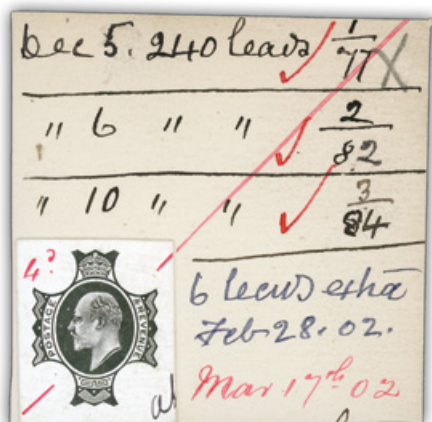 Dec 5. 240 leads 1/77 X
" 6 " " 2/82
" 10 " " 3/84
4d
POSTAGE & REVENUE
6 leads extra
Feb 28. 02.
Mar 17th 02